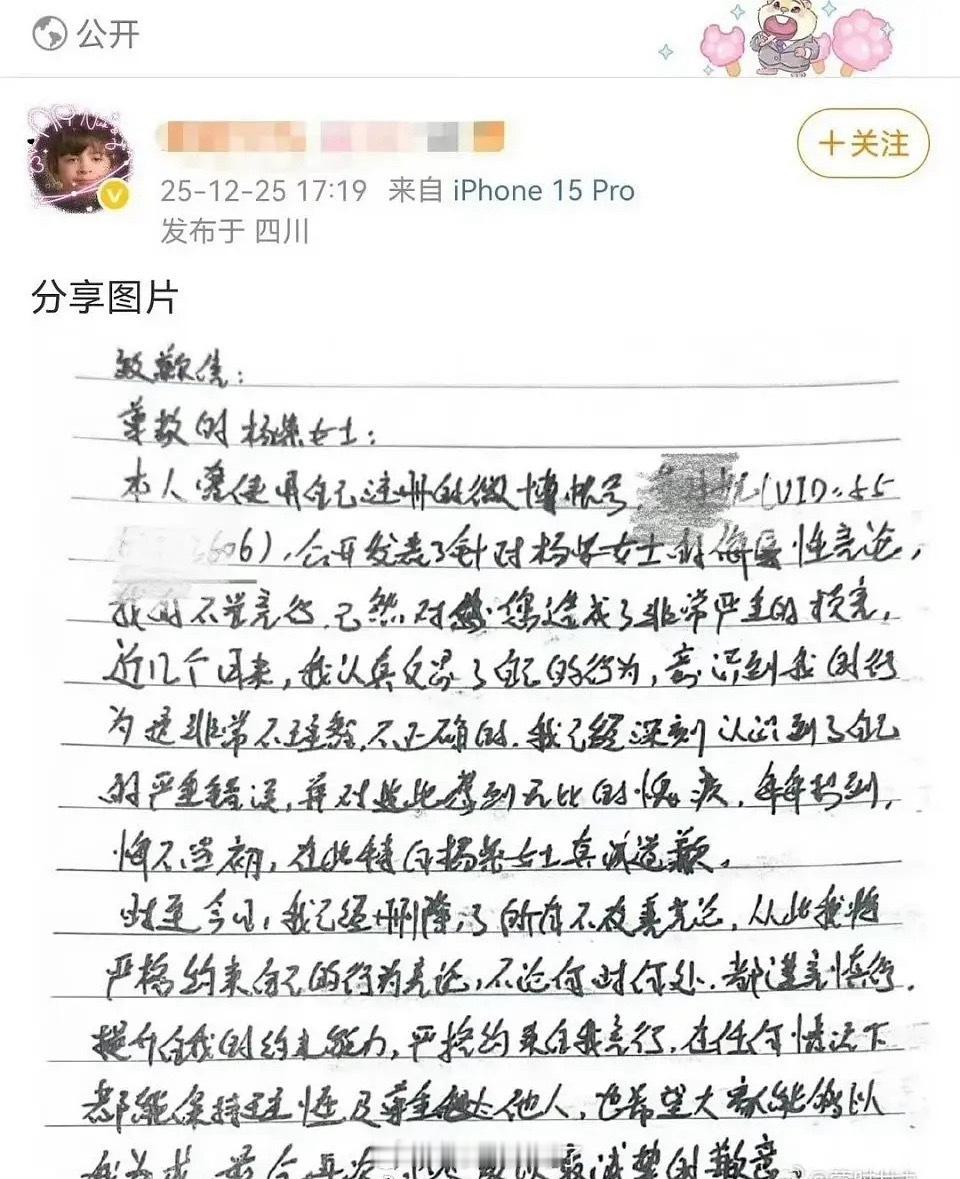 公开
+关注
25-12-25 17:19 来自 iPhone 15 Pro
发布于 四川
分享图片
致歉信：
尊敬的杨紫女士：
本人曾使用自己注册的微博帐号 (UID:55
606)，公开发表了针对杨紫女士的侮辱性言论，
我的不当言行，已然对您造成了非常严重的损害，
近几个月来，我认真反思了自己的行为，意识到我的行
为是非常不理智、不正确的，我已经深刻认识到了自己
的严重错误，并对此感到无比的愧疚，
悔不当初，在此特向杨紫女士真诚道歉。
时至今日，我已经删除了所有不友善言论，从此我将
严格约束自己的行为言论，不论何时何处，都谨言慎行，
提升自我的约束能力，严格约束自我言行，在任何情况下
都能保持理性及尊重他人，也希望大家能够以
我为戒，最后再次 诚挚的歉意。